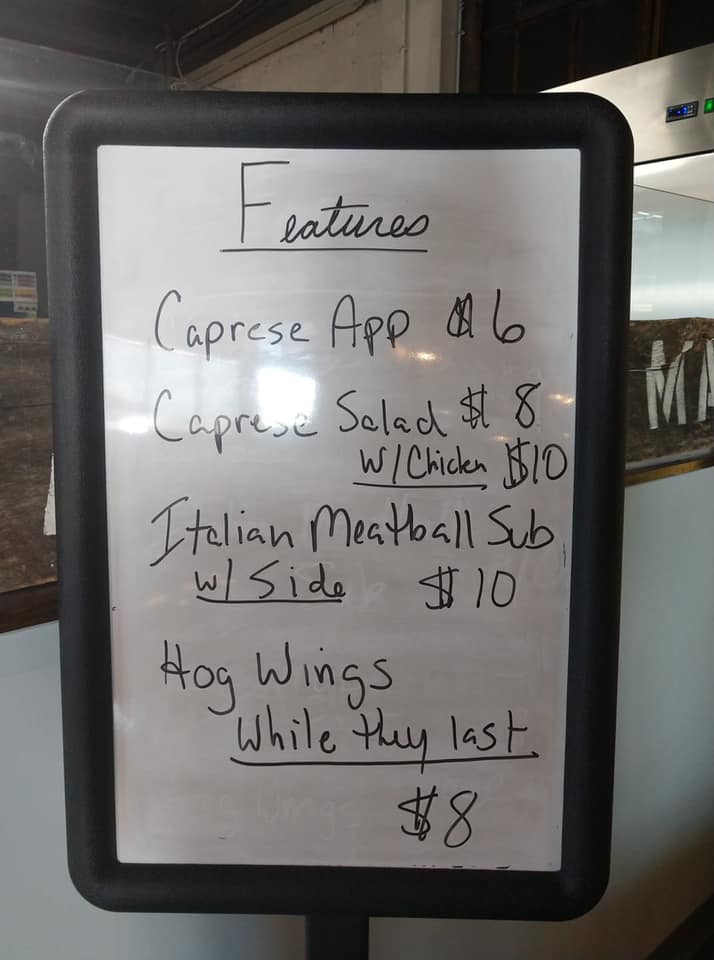 Features
Caprese App $6
Caprese Salad $8
w/Chicken $10
Italian Meatball Sub
w/ Side $10
Hog Wings
While they last
$8
MA